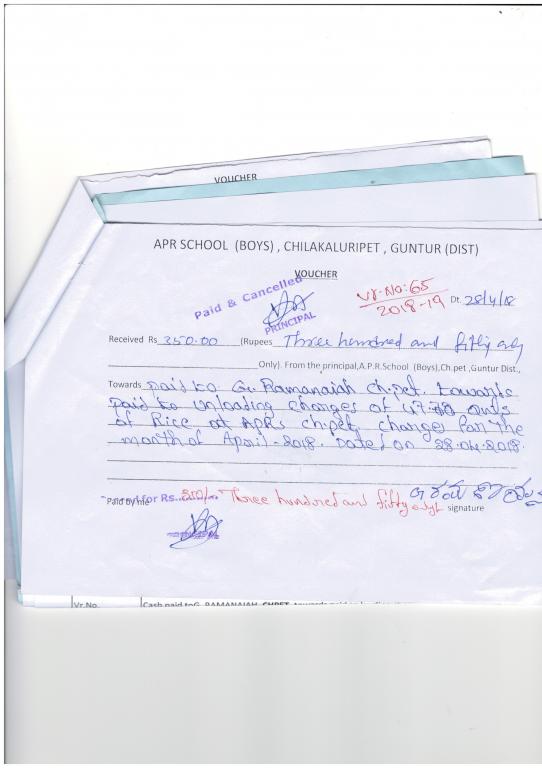 VOUCHER
APR SCHOOL (BOYS) , CHILAKALURIPET , GUNTUR (DIST)
VOUCHER
Paid & Cancelled
PRINCIPAL
Vr.No:65
2018-19 Dt. 28/4/18
Received Rs 350.00 (Rupees Three hundred and fifty only
Only). From the principal,A.P.R.School (Boys),Ch.pet ,Guntur Dist.,
Towards paid to G. Ramanaiah ch.pet. towards
paid to unloading charges of
of Rice at APRs ch.pet, charges for the
month of April-2018. Dated on 28.04.2018.
Paid by me for Rs. Three hundred and fifty only signature
Vr.No. Cash paid to G. RAMANAIAH, CHPET